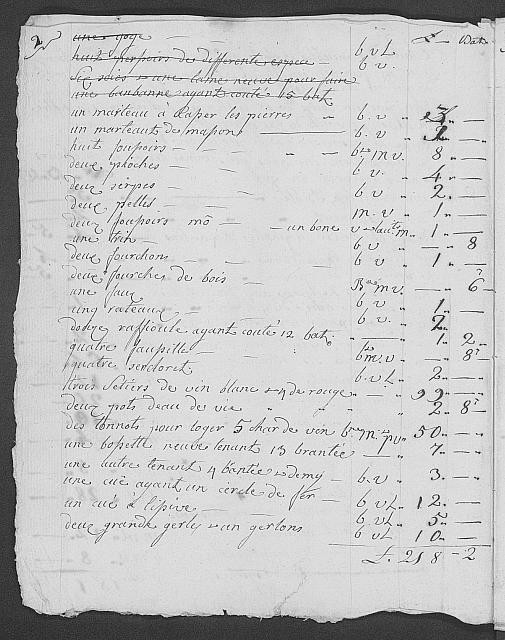 2 une goge — — b. v L £ — Batz
huit perpoirs de differente espece — b. v.
Six scies & une lame neuve pour faire
une banbanne ayant couté 15 batz
un marteau a Raper les pierres " b. v " 3 " —
un marteaut de mason — b. v " —
huit foupoirs — " — bne m v. 8 " —
deux pioches — — b v. " 4 " —
deux serpes — — b v " 2 " —
deux pelles — — m. v " 1 " —
deux foupoirs mô — un bone v & lautre m " 1 " —
une trih — — b v " — " 8
deux fourchons — — b v " 1 " —
deux fourches de bois — — Bne m v. — " 6
une faux — b v " 1 " —
unq rateaux — — b v. " 2 " —
douze raffoule ayant couté 12 batz — 1 " 2 "
quatre faupille — — bne m. v — " 8
quatre sercloret — b. v L " 2 " —
trois Setiers de vin blanc & 4 de rouge " — " 99 " —
deux pots deau de vie " " " 2 " 8
des tonnots pour loger 5 char de vin bne m & pv " 50 " —
une bosette neuve tenant 13 brantée — " 7 " —
une autre tenant 4 bantée & demy — b. v " 3 " —
une cüe ayant un cercle de fer — b. v L " 12 " —
un cüe à lessive — b. v L " 5 " —
deux grande gerles & un gerlons b v L 10 " —
£. 218 — 2